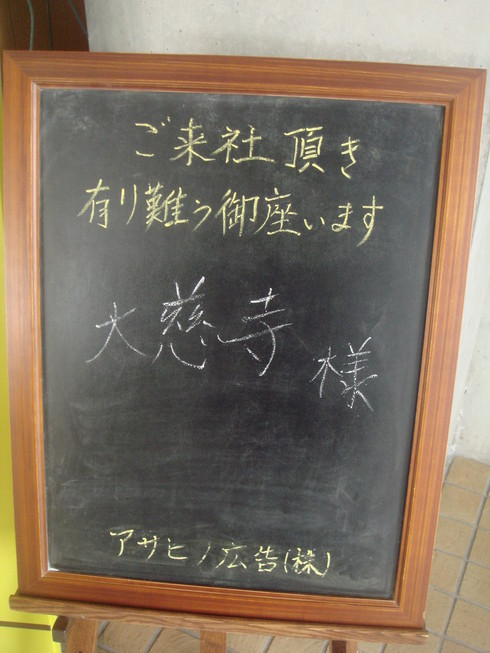 ご来社頂き
有り難う御座います
大慈寺 様
アサヒノ広告(株)